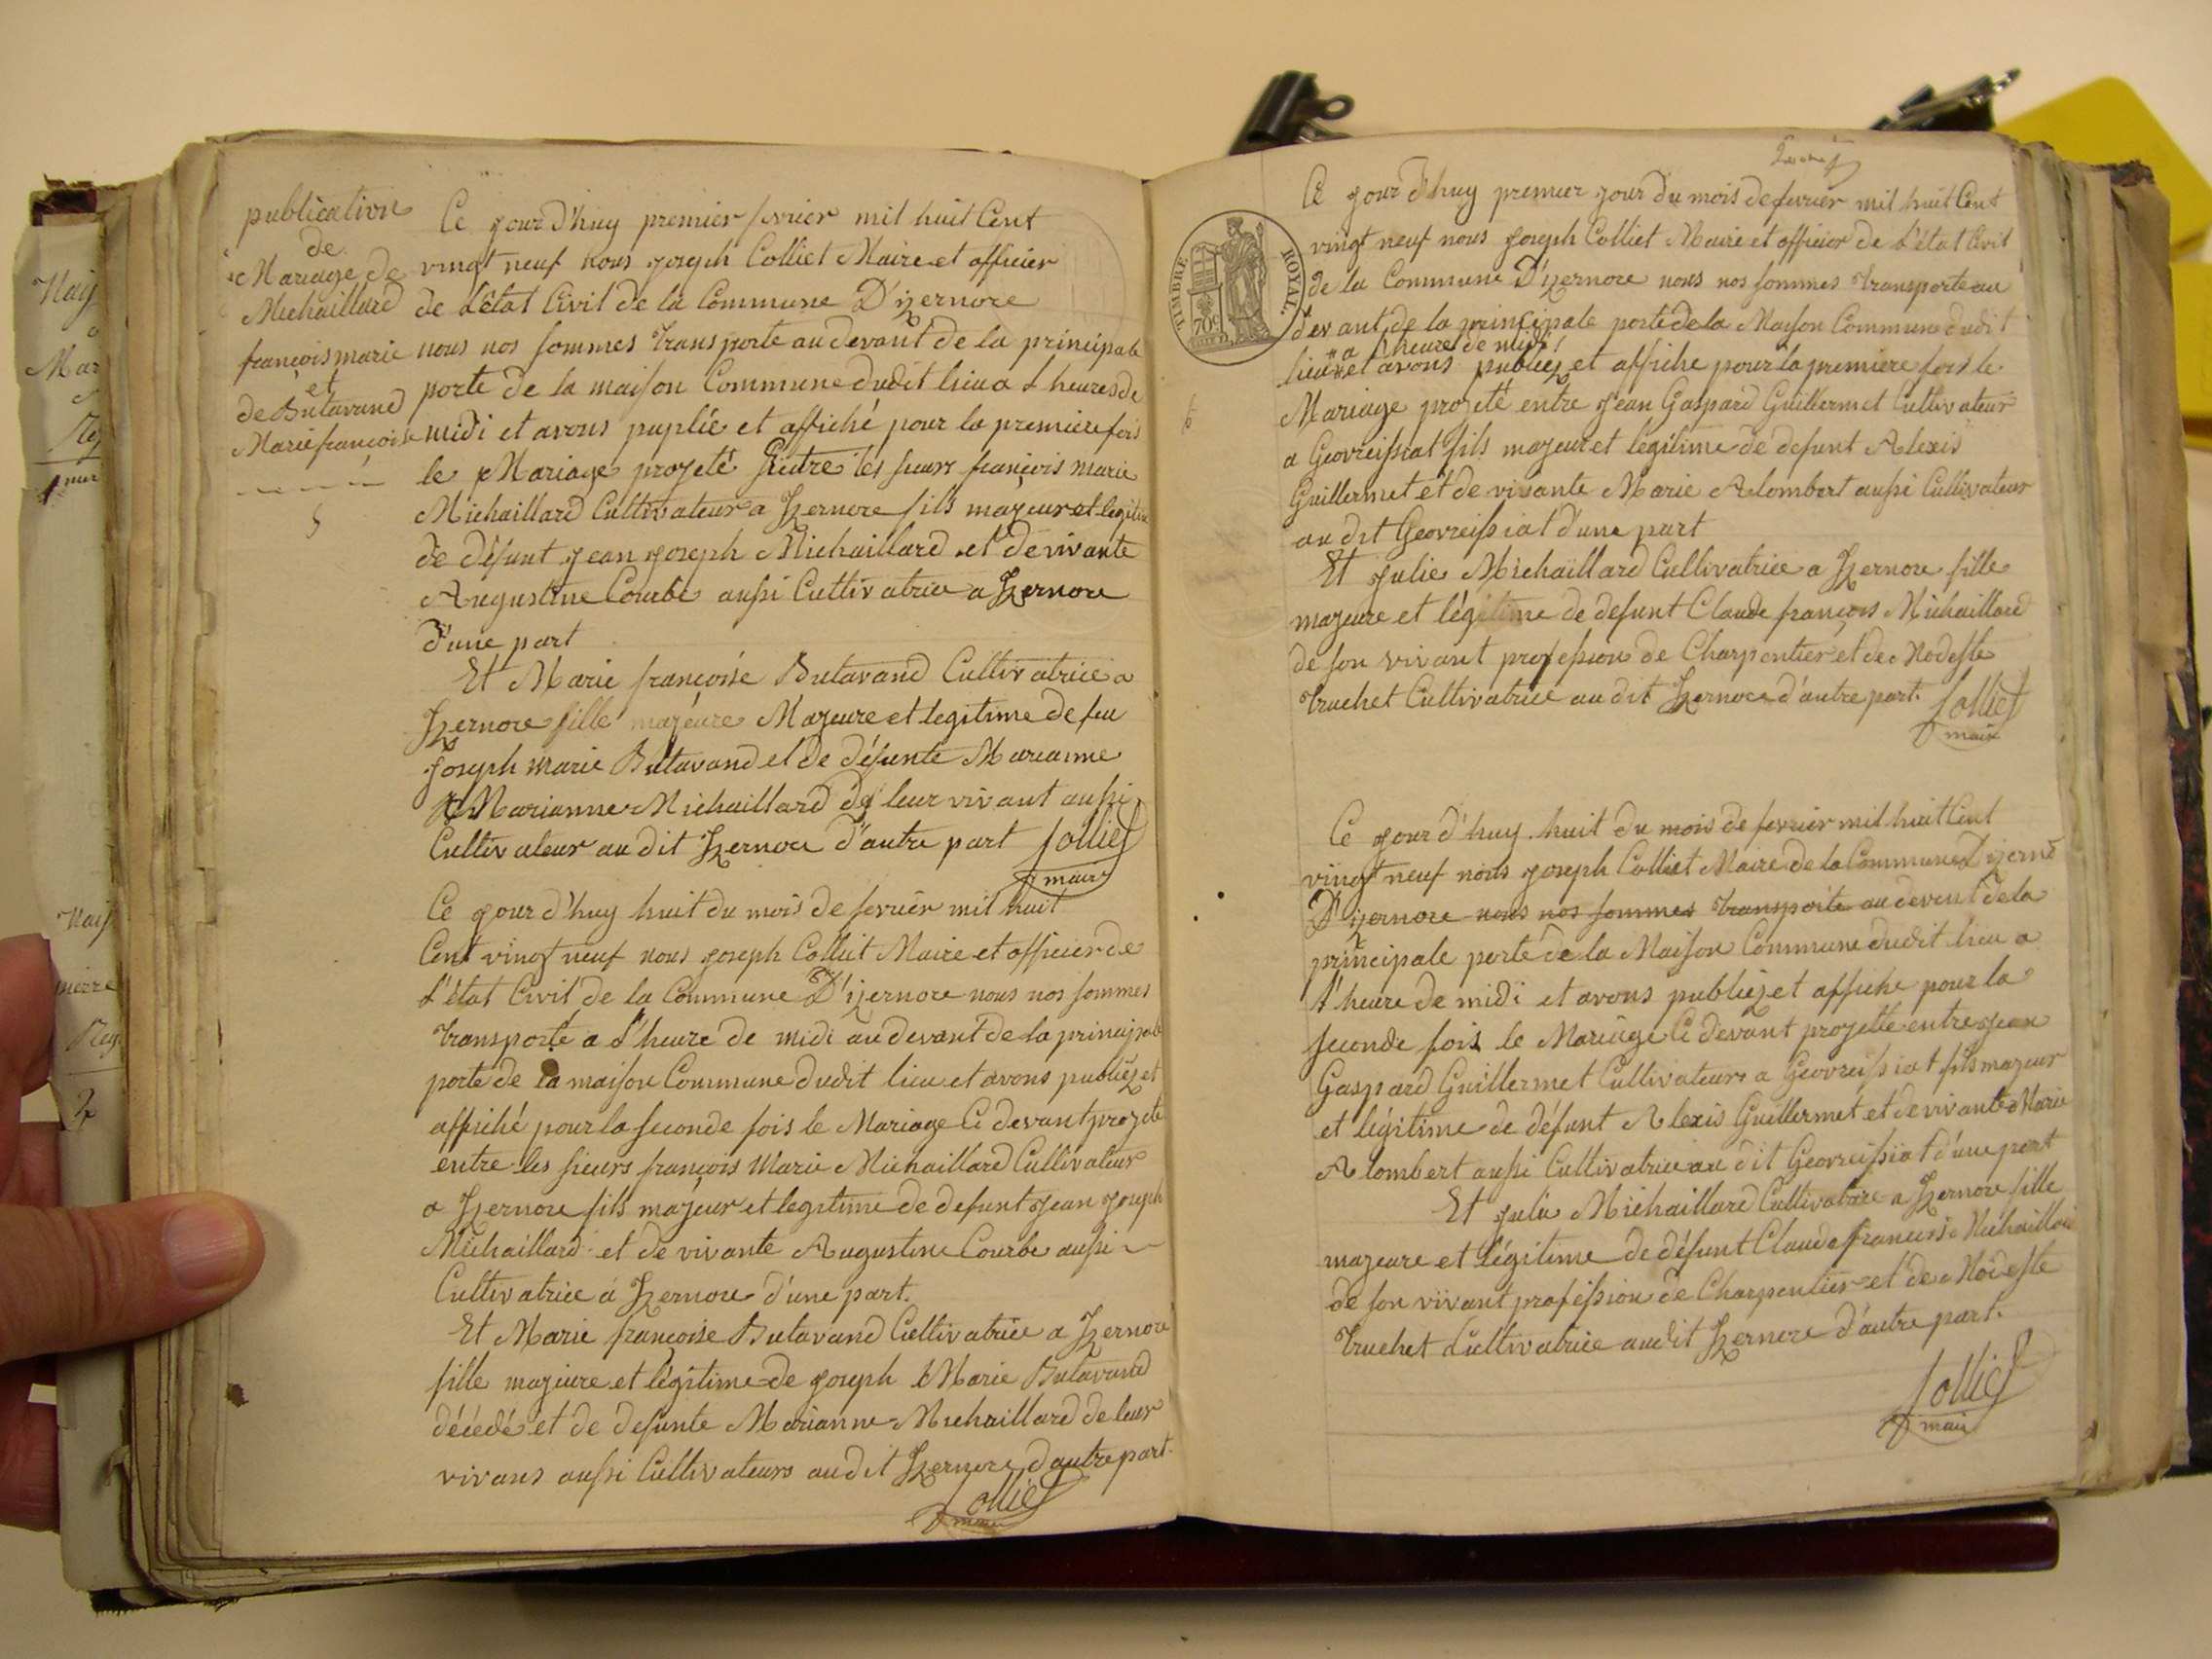 publication
de
Mariage de
Michaillard
françois marie
et
de Butavand
Marie françoise
Ce jour d'huy premier fevrier mil huit Cent
vingt neuf nous joseph Colliet Maire et officier
de L'état Civil de la Commune D'izernore
nous nos sommes transporté au devant de la principale
porte de la maison Commune dudit lieu a L heures de
midi et avons puplié et affiché pour la premiere fois
le Mariage projeté Entre les sieurs françois marie
Michaillard Cultivateur a Izernore fils majeur et legitime
de défunt jean joseph Michaillard et de vivante
Augustine Courbe aussi Cultivatrice a Izernore
d'une part
Et Marie françoise Butavand Cultivatrice a
Izernore fille majeure Majeure et legitime de feu
joseph marie Butavand et de défunte Marianne
Marianne Michaillard de leur vivant aussi
Cultivateur au dit Izernore d'autre part Colliet
maire
Ce jour d'huy huit du mois de fevrier mil huit
Cent vingt neuf nous joseph Colliet Maire et officier de
L'état Civil de la Commune D'izernore nous nos sommes
transporté a L'heure de midi au devant de la principale
porte de la maison Commune dudit lieu et avons publiez et
affiché pour la seconde fois le Mariage Ci devant projeté
entre les sieurs françois Marie Michaillard Cultivateur
a Izernore fils majeur et legitime de defunt jean joseph
Michaillard et de vivante Augustine Courbe aussi
Cultivatrice a Izernore d'une part.
Et Marie françoise Butavand Cultivatrice a Izernore
fille majeure et légitime de joseph Marie Butavand
décédé et de defunte Marianne Michaillard de leur
vivans aussi Cultivateurs audit Izernore d'autre part.
Colliet
maire
TIMBRE ROYAL.
70c
Ce jour d'huy premier jour du mois de fevrier mil huit Cent
vingt neuf nous joseph Colliet Maire et officier de L'état Civil
de la Commune D'izernore nous nos sommes transporte au
devant de la principale porte de la Maison Commune dudit
a L'heure de midi
lieu et avons publiez et affiche pour la premiere fois le
Mariage projeté entre jean Gaspard Guillermet Cultivateur
a Geovreissiat fils majeur et legitime de defunt Alexis
Guillermet et de vivante Marie Alombert aussi Cultivateur
au dit Geovreissiat d'une part
Et julie Michaillard Cultivatrice a Izernore fille
majeure et légitime de defunt Claude françois Michaillard
de son vivant profession de Charpentier et de Modeste
truchet Cultivatrice au dit Izernore d'autre part. Colliet
maire
Ce jour d'huy huit du mois de fevrier mil huit Cent
vingt neuf nous joseph Colliet Maire de la Commune D'izerne
D'izernore nous nos sommes transporte au devent de la
principale porte de la Maison Commune dudit lieu a
L'heure de midi et avons publiez et affiche pour la
seconde fois le Mariage Ci devant projetté entre jean
Gaspard Guillermet Cultivateurs a Geovreissiat fils majeur
et légitime de défunt Alexis Guillermet et de vivante Marie
Alombert aussi Cultivatrice au dit Geovreissiat d'une part
Et julie Michaillard Cultivatrice a Izernore fille
majeure et légitime de défunt Claude francois Michaillard
de son vivant profession de Charpentier et de Modeste
truchet Cultivatrice audit Izernore d'autre part.
Colliet
maire